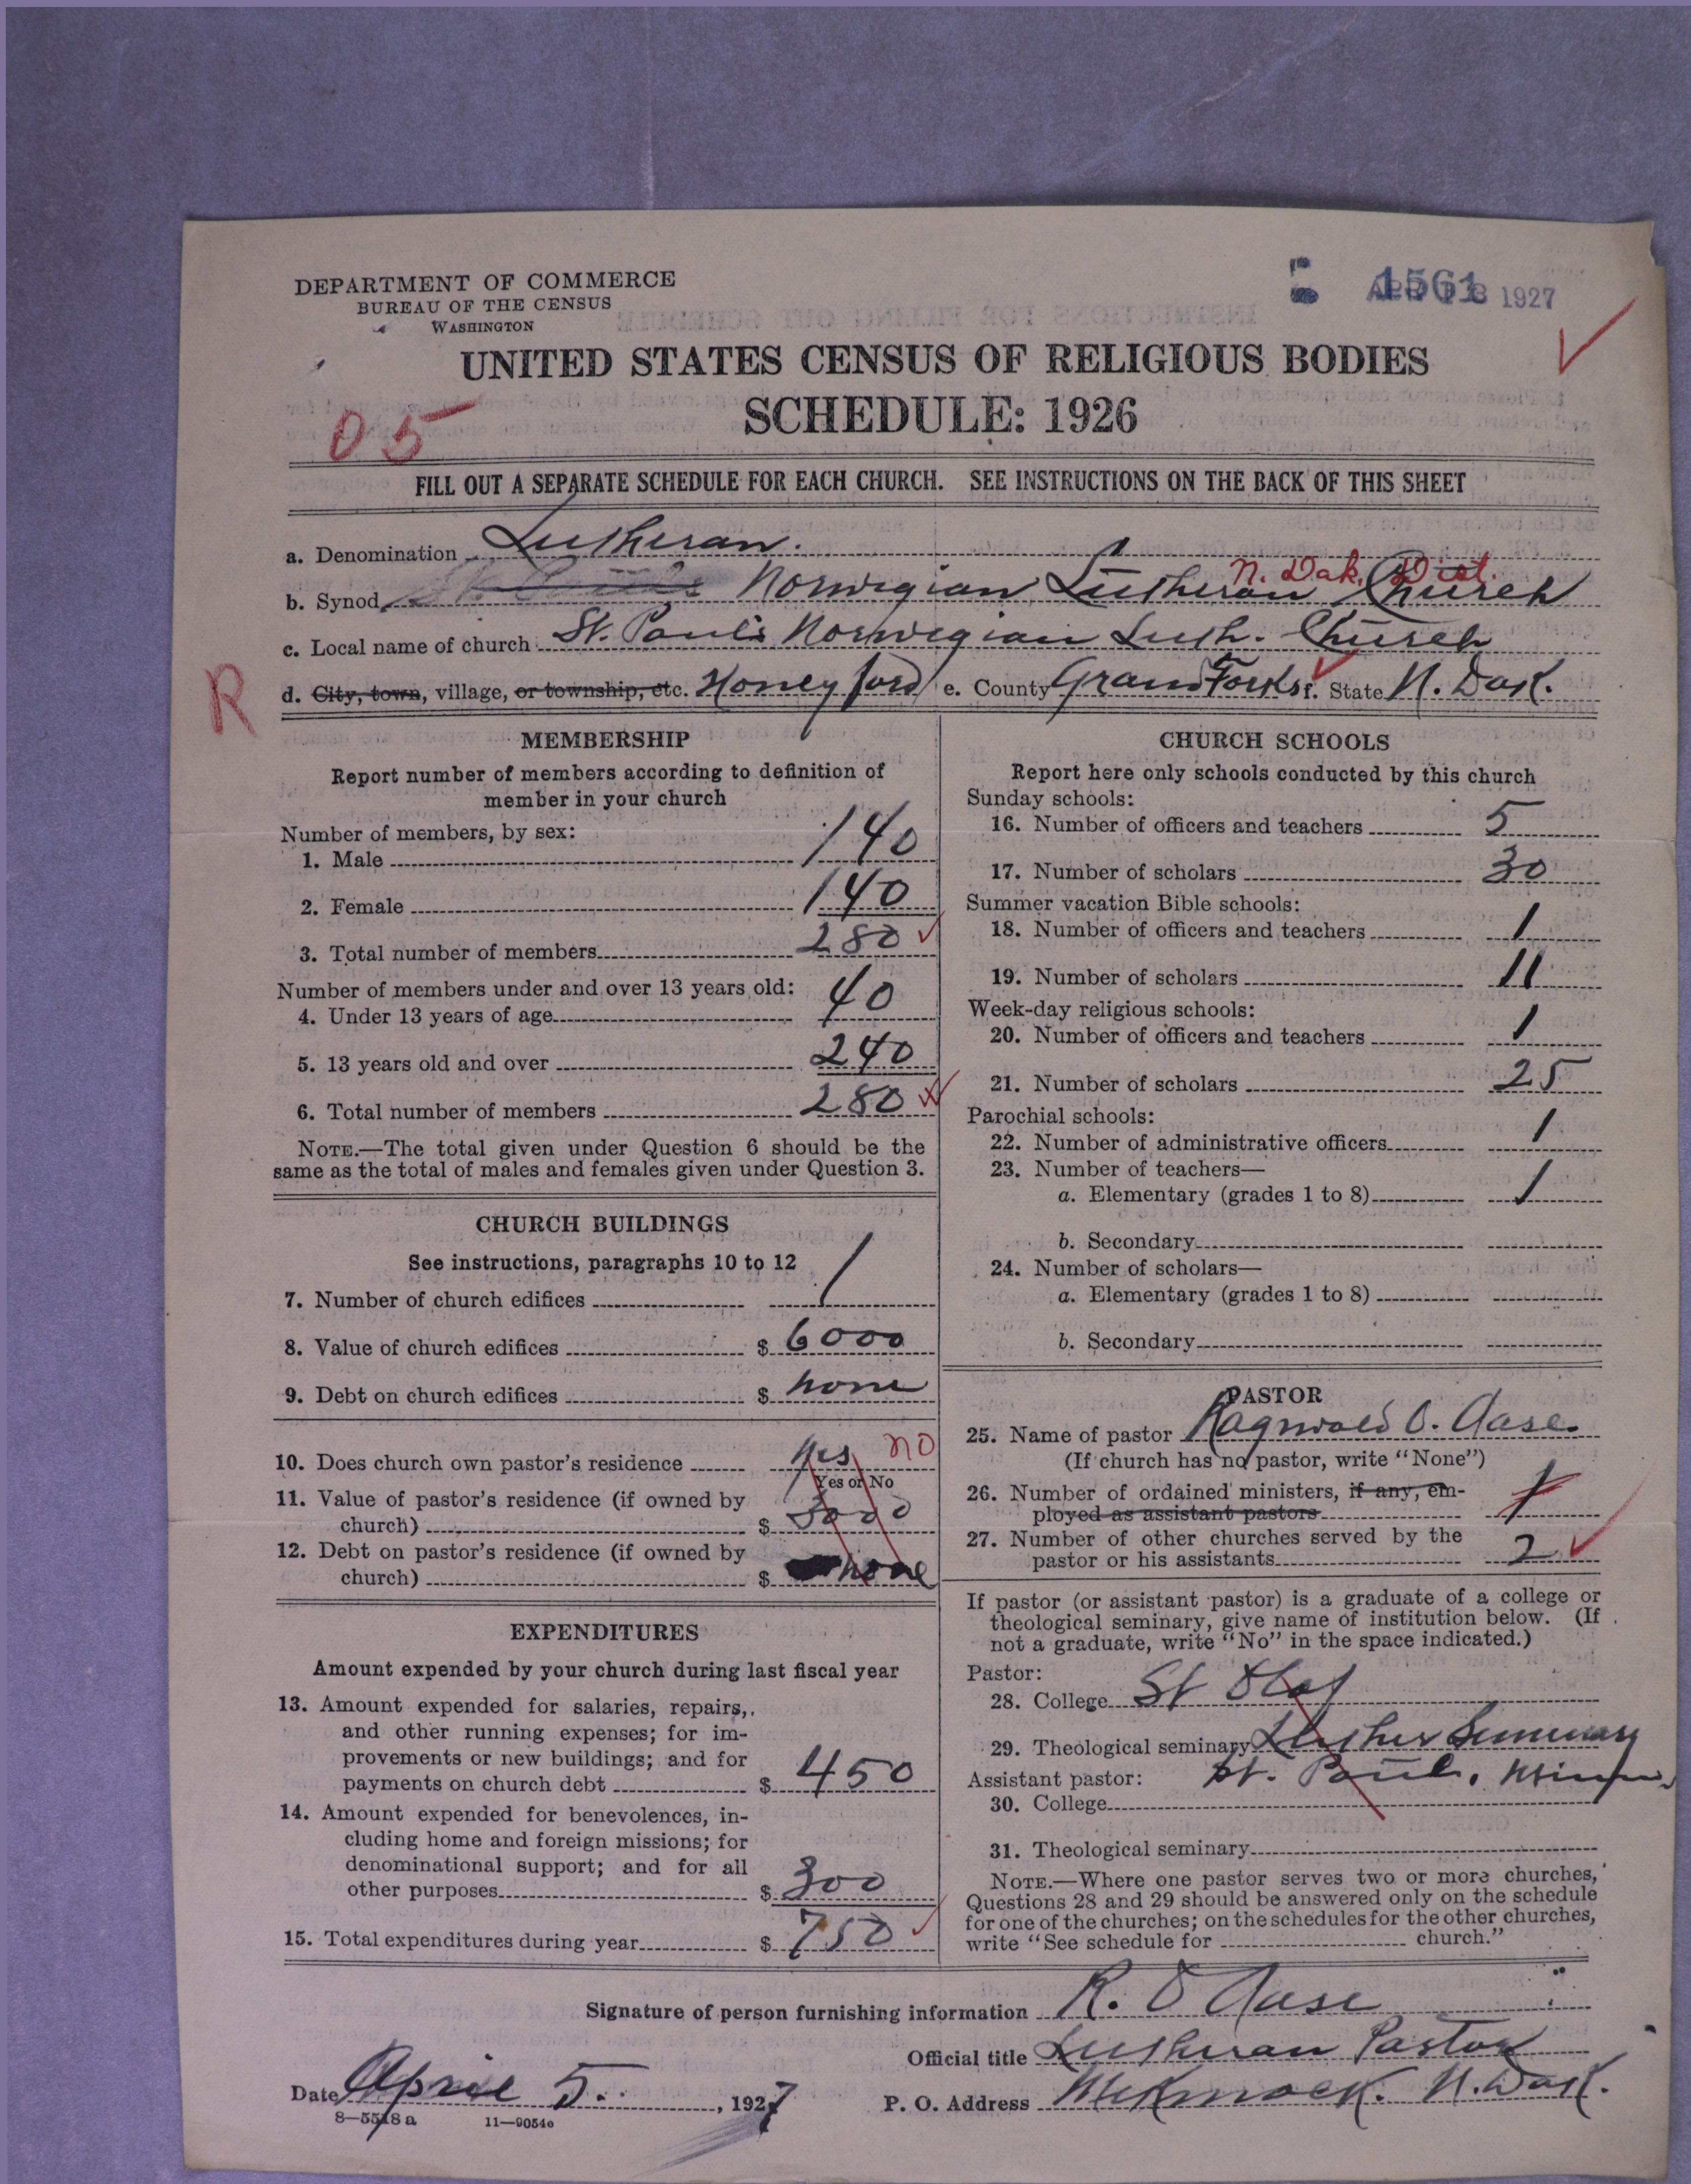 DEPARTMENT OF COMMERCE
BUREAU OF THE CENSUS
WASHINGTON
1561
1927
UNITED STATES CENSUS OF RELIGIOUS BODIES
SCHEDULE: 1926
05
FILL OUT A SEPARATE SCHEDULE FOR EACH CHURCH. SEE INSTRUCTIONS ON THE BACK OF THIS SHEET
a. Denomination Lutheran.
N. Dak. Dist.
b. Synod Norwegian Lutheran Church
c. Local name of church St. Paul's Norwegian Luth. Church
R
d. City, town, village, or township, etc. Honeyford e. County Grand Forks f. State N. Dak.
MEMBERSHIP
Report number of members according to definition of
member in your church
Number of members, by sex:
1. Male 140
2. Female 140
3. Total number of members 280
Number of members under and over 13 years old:
4. Under 13 years of age 40
5. 13 years old and over 240
6. Total number of members 280
NOTE.—The total given under Question 6 should be the
same as the total of males and females given under Question 3.
CHURCH BUILDINGS
See instructions, paragraphs 10 to 12
7. Number of church edifices 1
8. Value of church edifices $ 6000
9. Debt on church edifices $ none
10. Does church own pastor's residence yes no
Yes or No
11. Value of pastor's residence (if owned by
church) $ 3000
12. Debt on pastor's residence (if owned by
church) $ none
EXPENDITURES
Amount expended by your church during last fiscal year
13. Amount expended for salaries, repairs,
and other running expenses; for im-
provements or new buildings; and for
payments on church debt $ 450
14. Amount expended for benevolences, in-
cluding home and foreign missions; for
denominational support; and for all
other purposes $ 300
15. Total expenditures during year $ 750
CHURCH SCHOOLS
Report here only schools conducted by this church
Sunday schools:
16. Number of officers and teachers 5
17. Number of scholars 30
Summer vacation Bible schools:
18. Number of officers and teachers 1
19. Number of scholars 11
Week-day religious schools:
20. Number of officers and teachers 1
21. Number of scholars 25
Parochial schools:
22. Number of administrative officers 1
23. Number of teachers—
a. Elementary (grades 1 to 8) 1
b. Secondary
24. Number of scholars—
a. Elementary (grades 1 to 8)
b. Secondary
PASTOR
25. Name of pastor Ragnvald O. Aase.
(If church has no pastor, write "None")
26. Number of ordained ministers, if any, em-
ployed as assistant pastors 1
27. Number of other churches served by the
pastor or his assistants 2
If pastor (or assistant pastor) is a graduate of a college or
theological seminary, give name of institution below. (If
not a graduate, write "No" in the space indicated.)
Pastor:
28. College St Olaf
29. Theological seminary Luther Seminary
Assistant pastor: St. Paul, Minn.
30. College
31. Theological seminary
NOTE.—Where one pastor serves two or more churches,
Questions 28 and 29 should be answered only on the schedule
for one of the churches; on the schedules for the other churches,
write "See schedule for church."
Signature of person furnishing information R. O Aase
Official title Lutheran Pastor
Date April 5. , 1927
P. O. Address McKinock. N. Dak.
8—5518 a 11—9054e